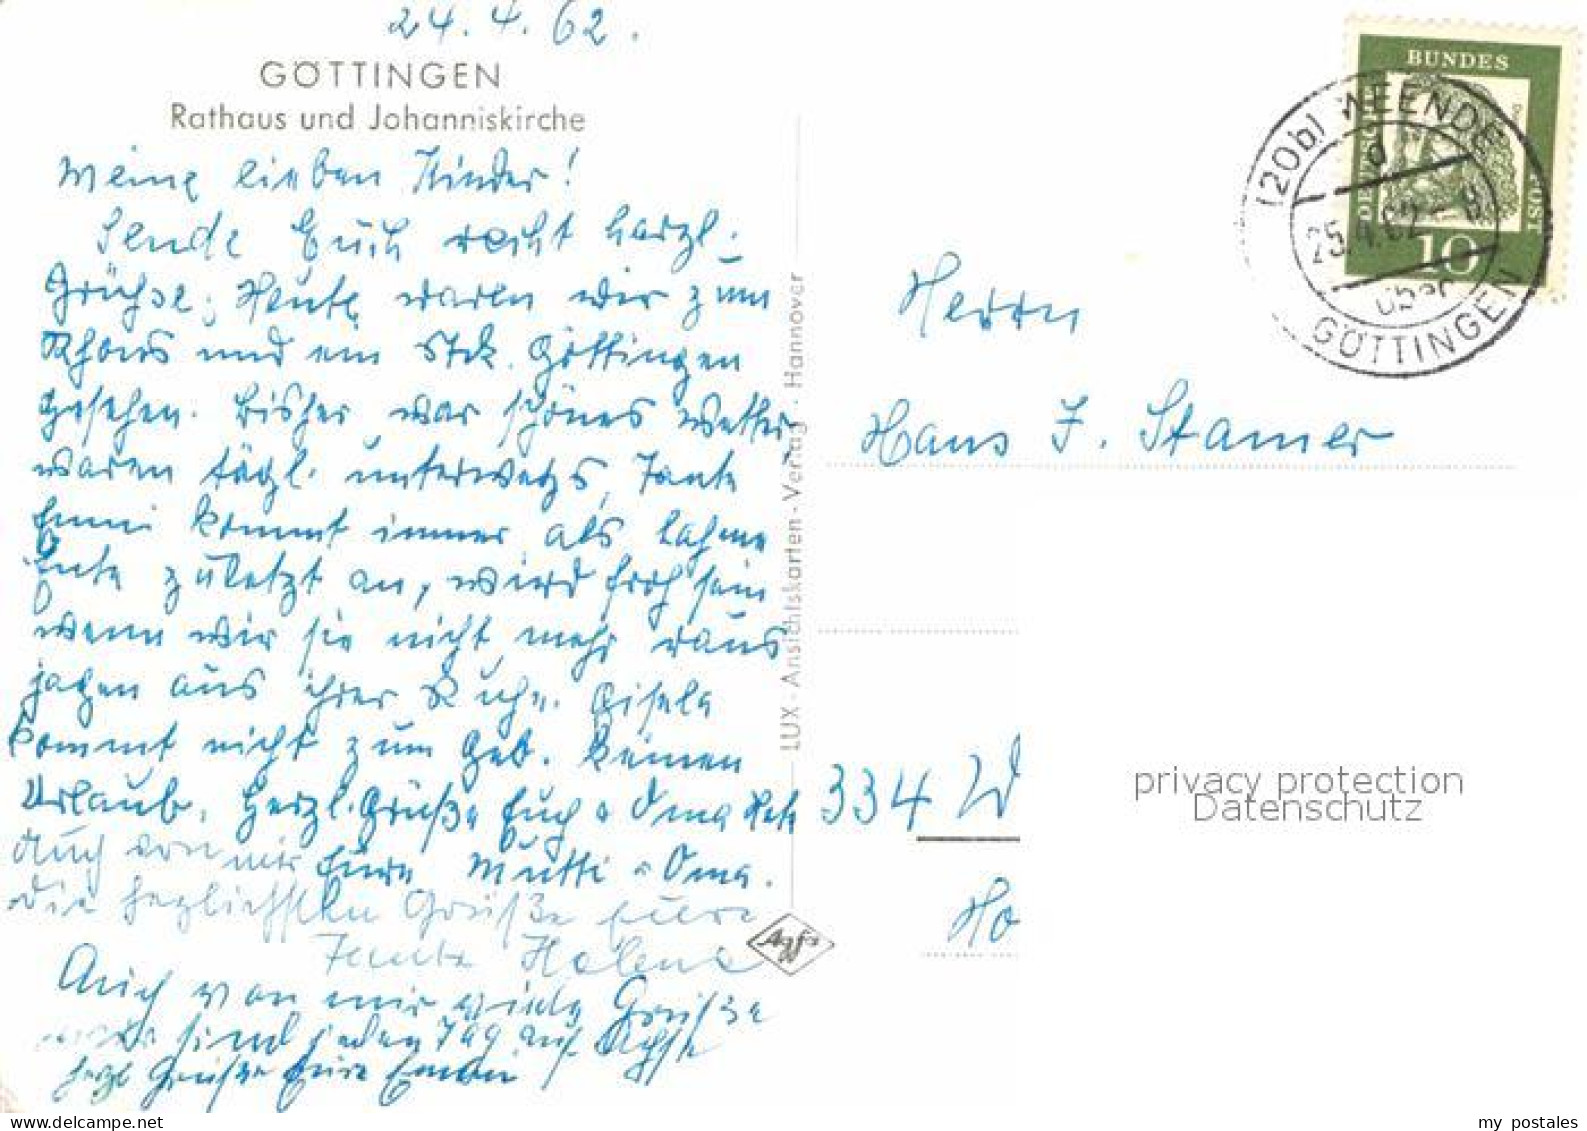 24.4.62.
GÖTTINGEN
Rathaus und Johanniskirche
Meine lieben Kinder!
Sende Euch recht herzl.
Grüße, Heute waren wir zum
und ein Stck. Göttingen
gesehen. Bisher war schönes Wetter
waren tägl. unterwegs, Tante
Emmi kommt immer als lahme
Ente zuletzt an, wird froh sein
wenn wir sie nicht mehr raus
jagen aus ihrer Ruhe. Gisela
kommt nicht zum Geb. keinen
Urlaub. Herzl. Grüße Euch Oma
Eure Mutti u Oma.
Auch von mir
die herzlichsten Grüße Eure
Tante Helene
Auch von mir viele Grüße
wir sind jeden Tag auf Achse
herzl Grüße Eure Emmi
LUX - Ansichtskarten - Verlag · Hannover
Agfa
BUNDES
DEUTSCHE
POST
10
(20b) WEENDE
d
25.4.62 - 8
über
GÖTTINGEN
Herrn
Hans J. Stamer
334 W
Ho
privacy protection
Datenschutz
my postales